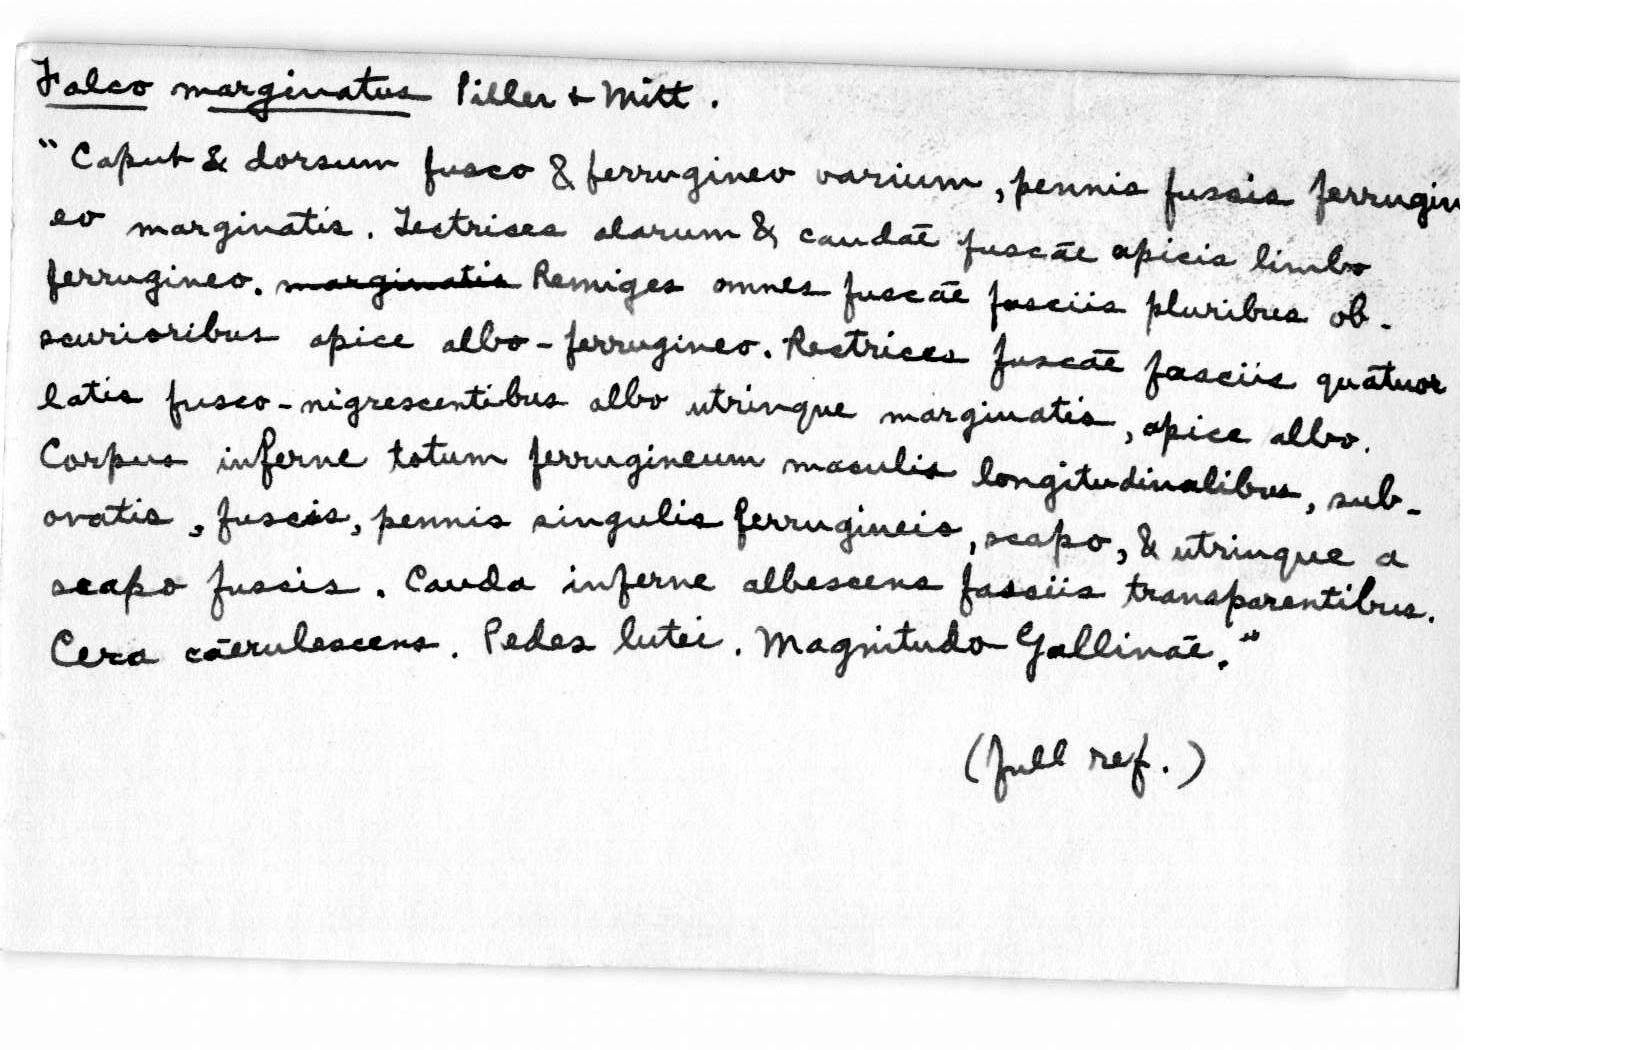 Falco marginatus Piller + Mitt.
"Caput & dorsum fusco & ferrugineo varium, pennis fuscis ferrugin
eo marginatis. Tectrises alarum & caudāe fuscāe apicis limbo
ferrugineo. marginatis Remiges omnes fuscāe fasciis pluribus ob-
scurioribus apice albo-ferrugineo. Rectrices fuscāe fasciis quātuor
latis fusco-nigrescentibus albo utrinque marginatis, apice albo.
Corpus inferne totum ferrugineum maculis longitudinalibus, sub-
ovatis, fuscis, pennis singulis ferrugineis, scapo, & utrinque a
scapo fuscis. Cauda inferne albescens fasciis transparentibus.
Cera cāerulescens. Pedes lutei. Magnitudo Gallināe."
(full ref.)